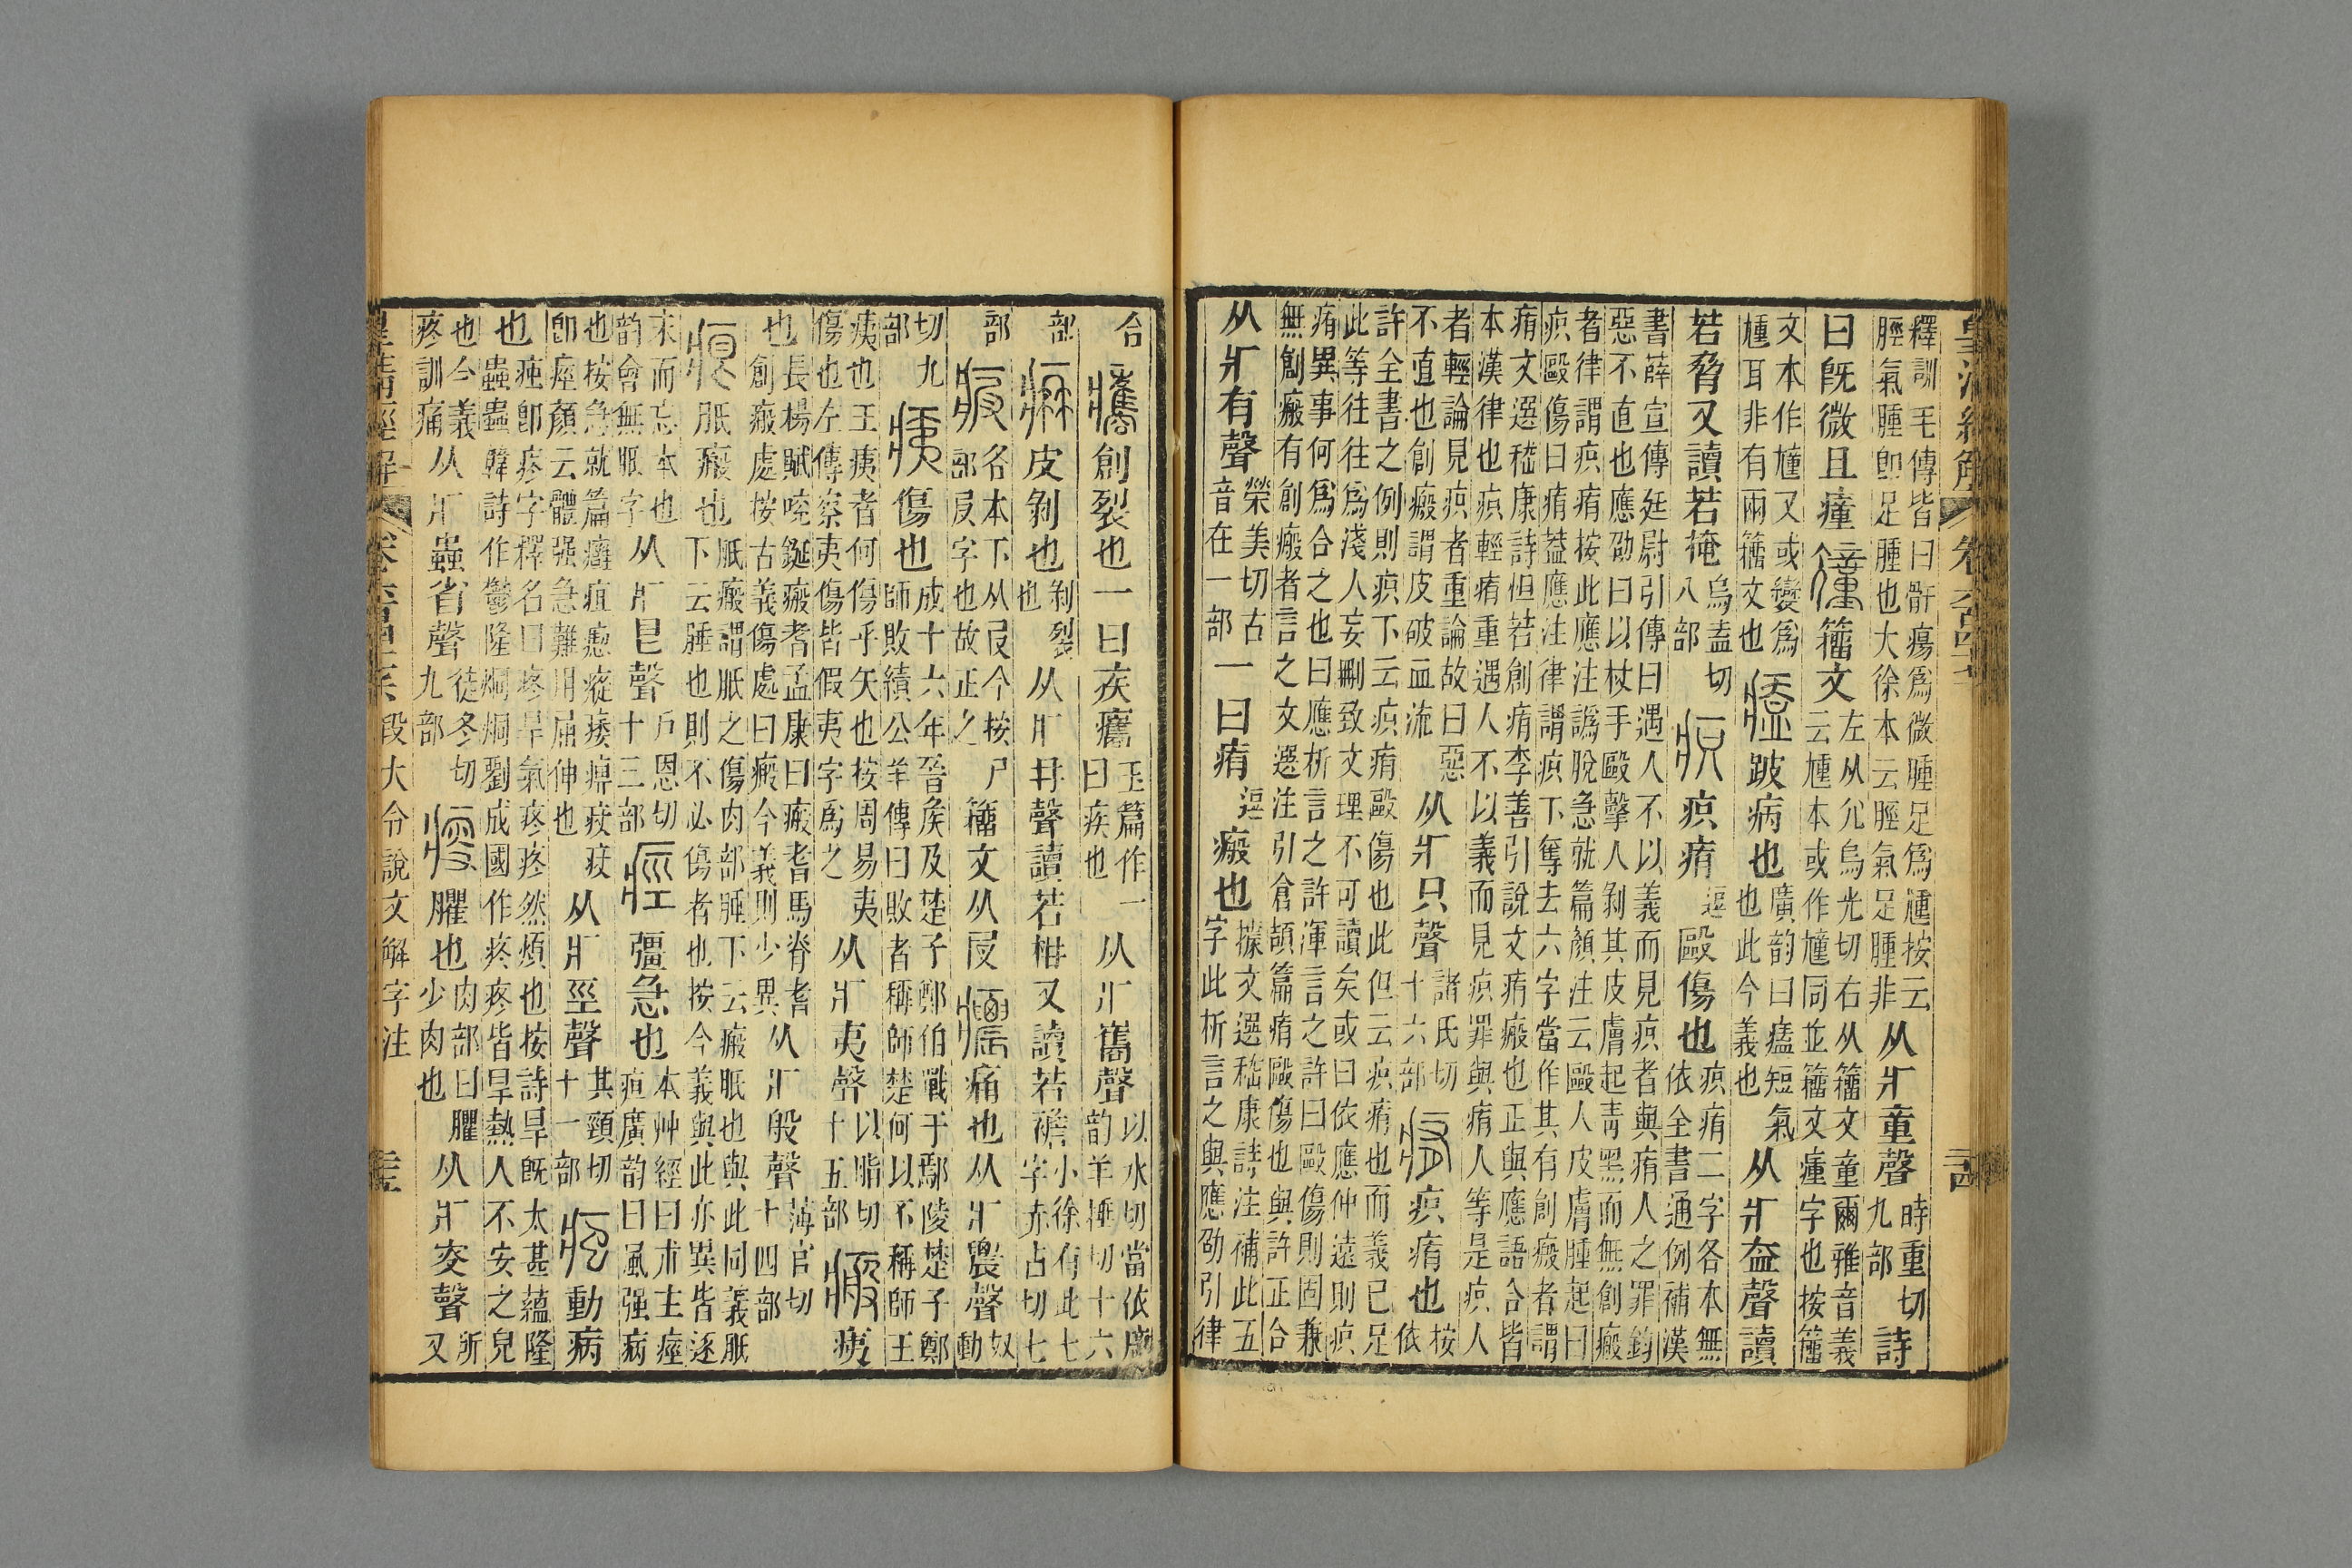 釋訓毛傳皆曰骭瘍爲微腫足爲尰按云
脛氣腫卽足腫也大徐本云脛氣足腫非
从疒童聲時重切九部詩
曰旣微且瘇籒文左从尢烏光切右从籒文童爾雅音義
云尰本或作㿈同並籒文瘇字也按籒
文本作㿈又或變爲
尰耳非有兩籒文也
跛病也廣韵曰瘟短氣也此今義也从疒盇聲讀
若脅又讀若掩烏盍切八部疻疻痏逗毆傷也疻痏二字各本無依全書通例補漢
書薛宣傳廷尉引傳曰遇人不以義而見疻者與痏人之罪鈞
惡不直也應劭曰以杖手毆擊人剝其皮膚起靑黑而無創瘢
者律謂疻痏按此應注譌脫急就篇顏注云毆人皮膚腫起曰
疻毆傷曰痏葢應注律謂疻下奪去六字當作其有創瘢者謂
痏文選嵇康詩怛若創痏李善引說文痏瘢也正與應語合皆
本漢律也疻輕痏重遇人不以義而見疻罪與痏人等是疻人
者輕論見疻者重論故曰惡
不直也創瘢謂皮破血流
从疒只聲諸氏切十六部痏疻痏也按依
許全書之例則疻下云疻痏毆傷也此但云疻痏也而義已足
此等往往爲淺人妄刪致文理不可讀矣或曰依應仲遠則疻
痏異事何爲合之也曰應析言之許渾言之許曰毆傷則固兼
無創瘢有創瘢者言之文選注引倉頡篇痏毆傷也與許正合
从疒有聲榮美切古音在一部一曰痏逗瘢也據文選嵇康詩注補此五字此析言之與應劭引律
合㿚創裂也一曰疾㿚玉篇作一曰疾也从疒巂聲以水切當依廣韵羊捶切十六
部㾆皮剝也剝裂也从疒冄聲讀若柑又讀若襜小徐有此七字赤占切七
部㞋各本下从㞋今按尸部㞋字也故正之籒文从㞋癑痛也从疒農聲奴動
切九部痍傷也成十六年晉矦及楚子鄭伯戰于鄢陵楚子鄭
師敗績公羊傳曰敗者稱師楚何以不稱師王
痍也王痍者何傷乎矢也按周易夷
傷也左傳察夷傷皆假夷字爲之
从疒夷聲以脂切十五部瘢痍
也長楊賦哓鋋瘢耆孟康曰瘢耆馬脊耆
創瘢處按古義傷處曰瘢今義則少異
从疒般聲薄官切十四部
痕胝瘢也胝瘢謂胝之傷肉部腄下云瘢胝也與此同義胝
下云腄也則不必傷者也按今義與此亦異皆逐
末而忘本也
韵會無胝字
从疒㫔聲戶恩切十三部痙彊急也本艸經曰朮主痙疸廣韵曰風强病
也按急就篇癰疽瘛瘲痿痹㾊
卽痙顏云體强急難用屈伸也
从疒巠聲其頸切十一部痋動病
也痋卽疼字釋名曰疼旱氣疼疼然煩也按詩旱旣太甚蘊隆
蟲蟲韓詩作鬱隆烔烔劉成國作疼疼皆旱熱人不安之皃
也今義
疼訓痛
从疒蟲省聲徒冬切九部瘦臞也肉部曰臞少肉也从疒叜聲所又
段大令說文解字注